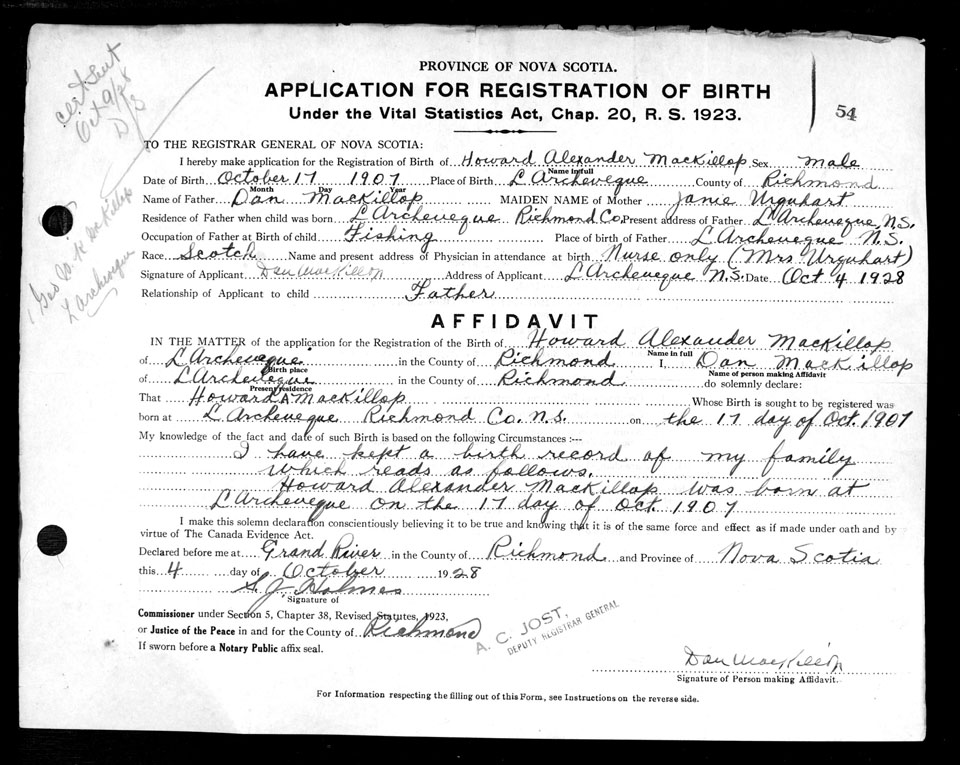 PROVINCE OF NOVA SCOTIA.
APPLICATION FOR REGISTRATION OF BIRTH
Under the Vital Statistics Act, Chap. 20, R. S. 1923.
54
Cert Sent
Oct 9/28
TO THE REGISTRAR GENERAL OF NOVA SCOTIA:
I hereby make application for the Registration of Birth of Howard Alexander MacKillop Sex Male
Name in full
Date of Birth October 17 1907 Place of Birth L'Archeveque County of Richmond
Month Day Year
Name of Father Dan MacKillop MAIDEN NAME of Mother Janie Urquhart
Residence of Father when child was born L'Archeveque Richmond Co. Present address of Father L'Archeveque, N.S.
Occupation of Father at Birth of child Fishing Place of birth of Father L'Archeveque N.S.
Race Scotch Name and present address of Physician in attendance at birth Nurse only (Mrs Urquhart)
Signature of Applicant Dan MacKillop Address of Applicant L'Archeveque N.S. Date Oct 4 1928
Relationship of Applicant to child Father
L'Archeveque
AFFIDAVIT
IN THE MATTER of the application for the Registration of the Birth of Howard Alexander MacKillop
Name in full
of L'Archeveque in the County of Richmond I, Dan MacKillop
Birth place Name of person making Affidavit
of L'Archeveque in the County of Richmond do solemnly declare:
Present residence
That Howard A MacKillop Whose Birth is sought to be registered was
born at L'Archeveque Richmond Co. N.S. on the 17 day of Oct. 1907
My knowledge of the fact and date of such Birth is based on the following Circumstances :—
I have kept a birth record of my family
which reads as follows.
Howard Alexander MacKillop was born at
L'Archeveque on the 17 day of Oct. 1907
I make this solemn declaration conscientiously believing it to be true and knowing that it is of the same force and effect as if made under oath and by
virtue of The Canada Evidence Act.
Declared before me at Grand River in the County of Richmond and Province of Nova Scotia
this 4 day of October 1928
S. J. Holmes
Signature of
Commissioner under Section 5, Chapter 38, Revised Statutes, 1923,
or Justice of the Peace in and for the County of Richmond
If sworn before a Notary Public affix seal.
A. C. JOST,
DEPUTY REGISTRAR GENERAL
Dan MacKillop
Signature of Person making Affidavit.
For Information respecting the filling out of this Form, see Instructions on the reverse side.